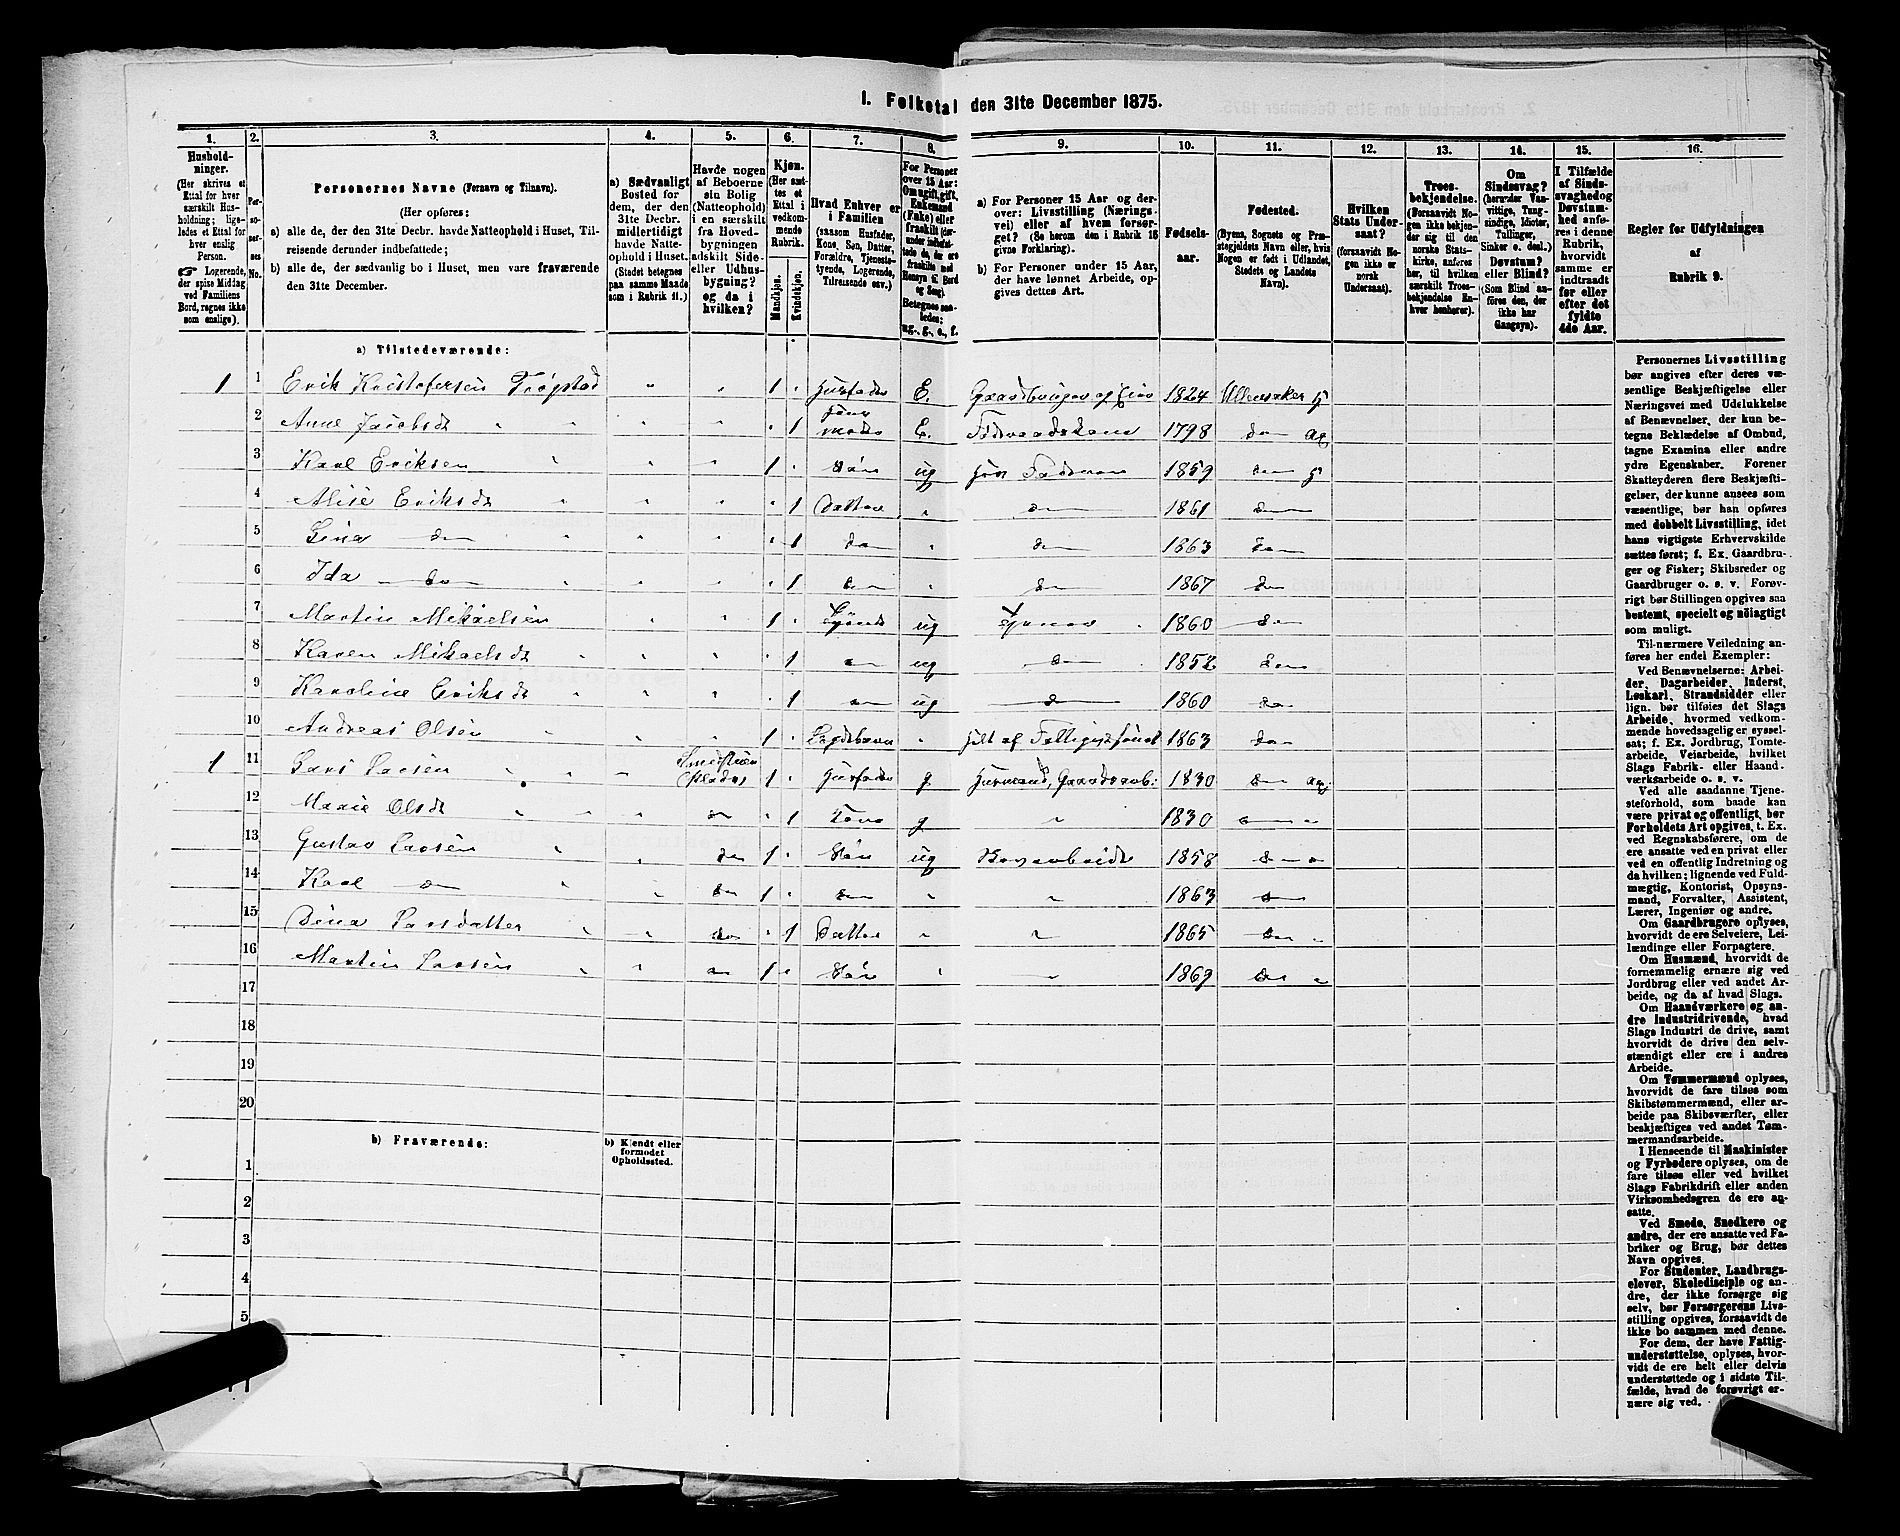 I. Folketal den 31te December 1875.
1. 2. 3. 4. 5. 6. 7. 8. 9. 10. 11. 12. 13. 14. 15. 16.
Hushold-
ninger.
(Her skrives et
Ettal for hver
særskilt Hus-
holdning; lige-
ledes et Ettal for
hver enslig
Person.
☞ Logerende,
der spise Middag
ved Familiens
Bord, regnes ikke
som enslige).
Per-
so-
ner-
nes
No.
Personernes Navne (Fornavn og Tilnavn).
(Her opføres:
a) alle de, der den 31te Decbr. havde Natteophold i Huset, Til-
reisende derunder indbefattede;
b) alle de, der sædvanlig bo i Huset, men vare fraværende
den 31te December.
a) Sædvanligt
Bosted for
dem, der den
31te Decbr.
midlertidigt
havde Natte-
ophold i Huset.
(Stedet betegnes
paa samme Maade
som i Rubrik 11.)
Havde nogen
af Beboerne
sin Bolig
(Natteophold)
i en særskilt
fra Hoved-
bygningen
adskilt Side-
eller Udhus-
bygning?
og da i
hvilken?
Kjøn.
(Her sæt-
tes et
Ettal i
vedkom-
mende
Rubrik.
Mandkjøn.
Kvindekjøn.
Hvad Enhver er
i Familien
(saasom Husfader,
Kone, Søn, Datter,
Forældre, Tjeneste-
tyende, Logerende,
Tilreisende osv.)
For Personer
over 15 Aar:
Om ugift, gift,
Enkemand
(Enke) eller
fraskilt
Betegnes saa-
ledes:
ug., g., e., f.
a) For Personer 15 Aar og der-
over: Livsstilling (Nærings-
vei) eller af hvem forsør-
get? (Se herom den i Rubrik 16
givne Forklaring).
b) For Personer under 15 Aar,
der have lønnet Arbeide, op-
gives dettes Art.
Fødsels-
aar.
Fødested.
(Byens, Sognets og Præ-
stegjeldets Navn eller, hvis
Nogen er født i Udlandet,
Stedets og Landets
Navn).
Hvilken
Stats Under-
saat?
(forsaavidt No-
gen ikke er
norsk
Undersaat).
Troes-
bekjendelse.
(Forsaavidt No-
gen ikke bekjen-
der sig til den
norske Stats-
kirke, anføres
her, til hvilken
særskilt Troes-
bekjendelse En-
hver henhører).
Om
Sindssvag?
(herunder Van-
vittige, Tung-
sindige, Idioter,
Tullinger,
Sinker o. desl.).
Døvstum?
eller Blind?
(Som Blind an-
føres den, der
ikke har
Gangsyn).
I Tilfælde
af Sinds-
svaghed og
Døvstum-
hed anfø-
res i denne
Rubrik,
hvorvidt
samme er
indtraadt
før eller
efter det
fyldte
4de Aar.
Regler for Udfyldningen
af
Rubrik 9.
a) Tilstedeværende:
1 1 Erik Kristofersen Trøgstad " " 1 · Husfader E. Gaardbruger og Eier 1824 Ullensaker
2 Anne Jacobsdt " " " " · 1 hans Moder E. Føderaadskone 1798 do
3 Karl Eriksen " " " 1 · Søn ug 1859 do
4 Alise Eriksdt " " " · 1 Datter " do 1861 do
5 Lina do " " " · 1 do " do 1863 do
6 Ida do " " " · 1 do " do 1867 do
7 Martin Mikaelsen " " 1 · ug 1860 do
8 Karen Mikaelsdt " " " · 1 do ug do 1852 do
9 Karoline Eriksdt " " " · 1 do ug do 1860 do
10 Andreas Olsen " " " 1 · Lægdsbarn " 1863 do
1 11 Lars Larsen " " " 1 · Husfader g Husmand, Gaardsarb: 1830 do
12 Marie Olsdt " " " do · 1 Kone g " 1830 do "
13 Gustav Larsen " " do 1 · Søn ug 1858 do "
14 Karl do " " do 1 · do " " 1863 do
15 Dina Larsdatter " " do · 1 Datter " " 1865 do "
16 Martin Larsen " " do 1 · Søn " " 1869 do "
17
18
19
20
b) Fraværende:
b) Kjendt eller
formodet
Opholdssted.
1
2
3
4
5
Personernes Livsstilling
bør angives efter deres væ-
sentlige Beskjæftigelse eller
Næringsvei med Udelukkelse
af Benævnelser, der kun be-
tegne Beklædelse af Ombud,
tagne Examina eller andre
ydre Egenskaber. Forener
Skatteyderen flere Beskjæfti-
gelser, der kunne ansees som
væsentlige, bør han opføres
med dobbelt Livsstilling, idet
hans vigtigste Erhvervskilde
sættes først; f. Ex. Gaardbru-
ger og Fisker; Skibsreder og
Gaardbruger o. s. v. Forøv-
rigt bør Stillingen opgives saa
bestemt, specielt og nöiagtigt
som muligt.
Til nærmere Veiledning an-
føres her endel Exempler:
Ved Benævnelserne: Arbei-
der, Dagarbeider, Inderst,
Løskarl, Strandsidder eller
lign. bør tilføies det Slags
Arbeide, hvormed vedkom-
mende hovedsagelig er syssel-
sat; f. Ex. Jordbrug, Tomte-
arbeide, Veiarbeide, hvilket
Slags Fabrik- eller Haand-
værksarbeide o. s. v.
Ved alle saadanne Tjene-
steforhold, som baade kan
være privat og offentligt, bør
Forholdets Art opgives, t. Ex.
ved Regnskabsførere, om de
ere ansatte ved en privat eller
ved en offentlig Indretning og
da hvilken; lignende ved Fuld-
mægtig, Kontorist, Opsyns-
mand, Forvalter, Assistent,
Lærer, Ingeniør og andre.
Om Gaardbrugere oplyses,
hvorvidt de ere Selveiere, Lei-
lændinge eller Forpagtere.
Om Husmænd, hvorvidt de
fornemmelig ernære sig ved
Jordbrug eller ved andet Ar-
beide, og da af hvad Slags.
Om Haandværkere og an-
dre Industridrivende, hvad
Slags Industri de drive, samt
hvorvidt de drive den selv-
stændigt eller ere i andres
Arbeide.
Om Tømmermænd oplyses,
hvorvidt de fare tilsøs som
Skibstømmermænd, eller ar-
beide paa Skibsværfter, eller
beskjæftiges ved andet Tøm-
mermandsarbeide.
I Henseende til Maskinister
og Fyrbødere oplyses, om de
fare tilsøs eller ved hvilket
Slags Fabrikdrift eller anden
Virksomhedsgren de ere an-
satte.
Ved Smede, Snedkere og
andre, der ere ansatte ved Fa-
briker og Brug, bør dettes
Navn opgives.
For Studenter, Landbrugs-
elever, Skoledisciple og an-
dre, der ikke forsørge sig
selv, bør Forsørgerens Livs-
stilling opgives, forsaavidt de
ikke bo sammen med denne.
For dem, der have Fattig-
understøttelse, oplyses, hvor-
vidt de ere helt eller delvis
understøttede og i sidste Til-
fælde, hvad de forøvrigt er-
nære sig ved.